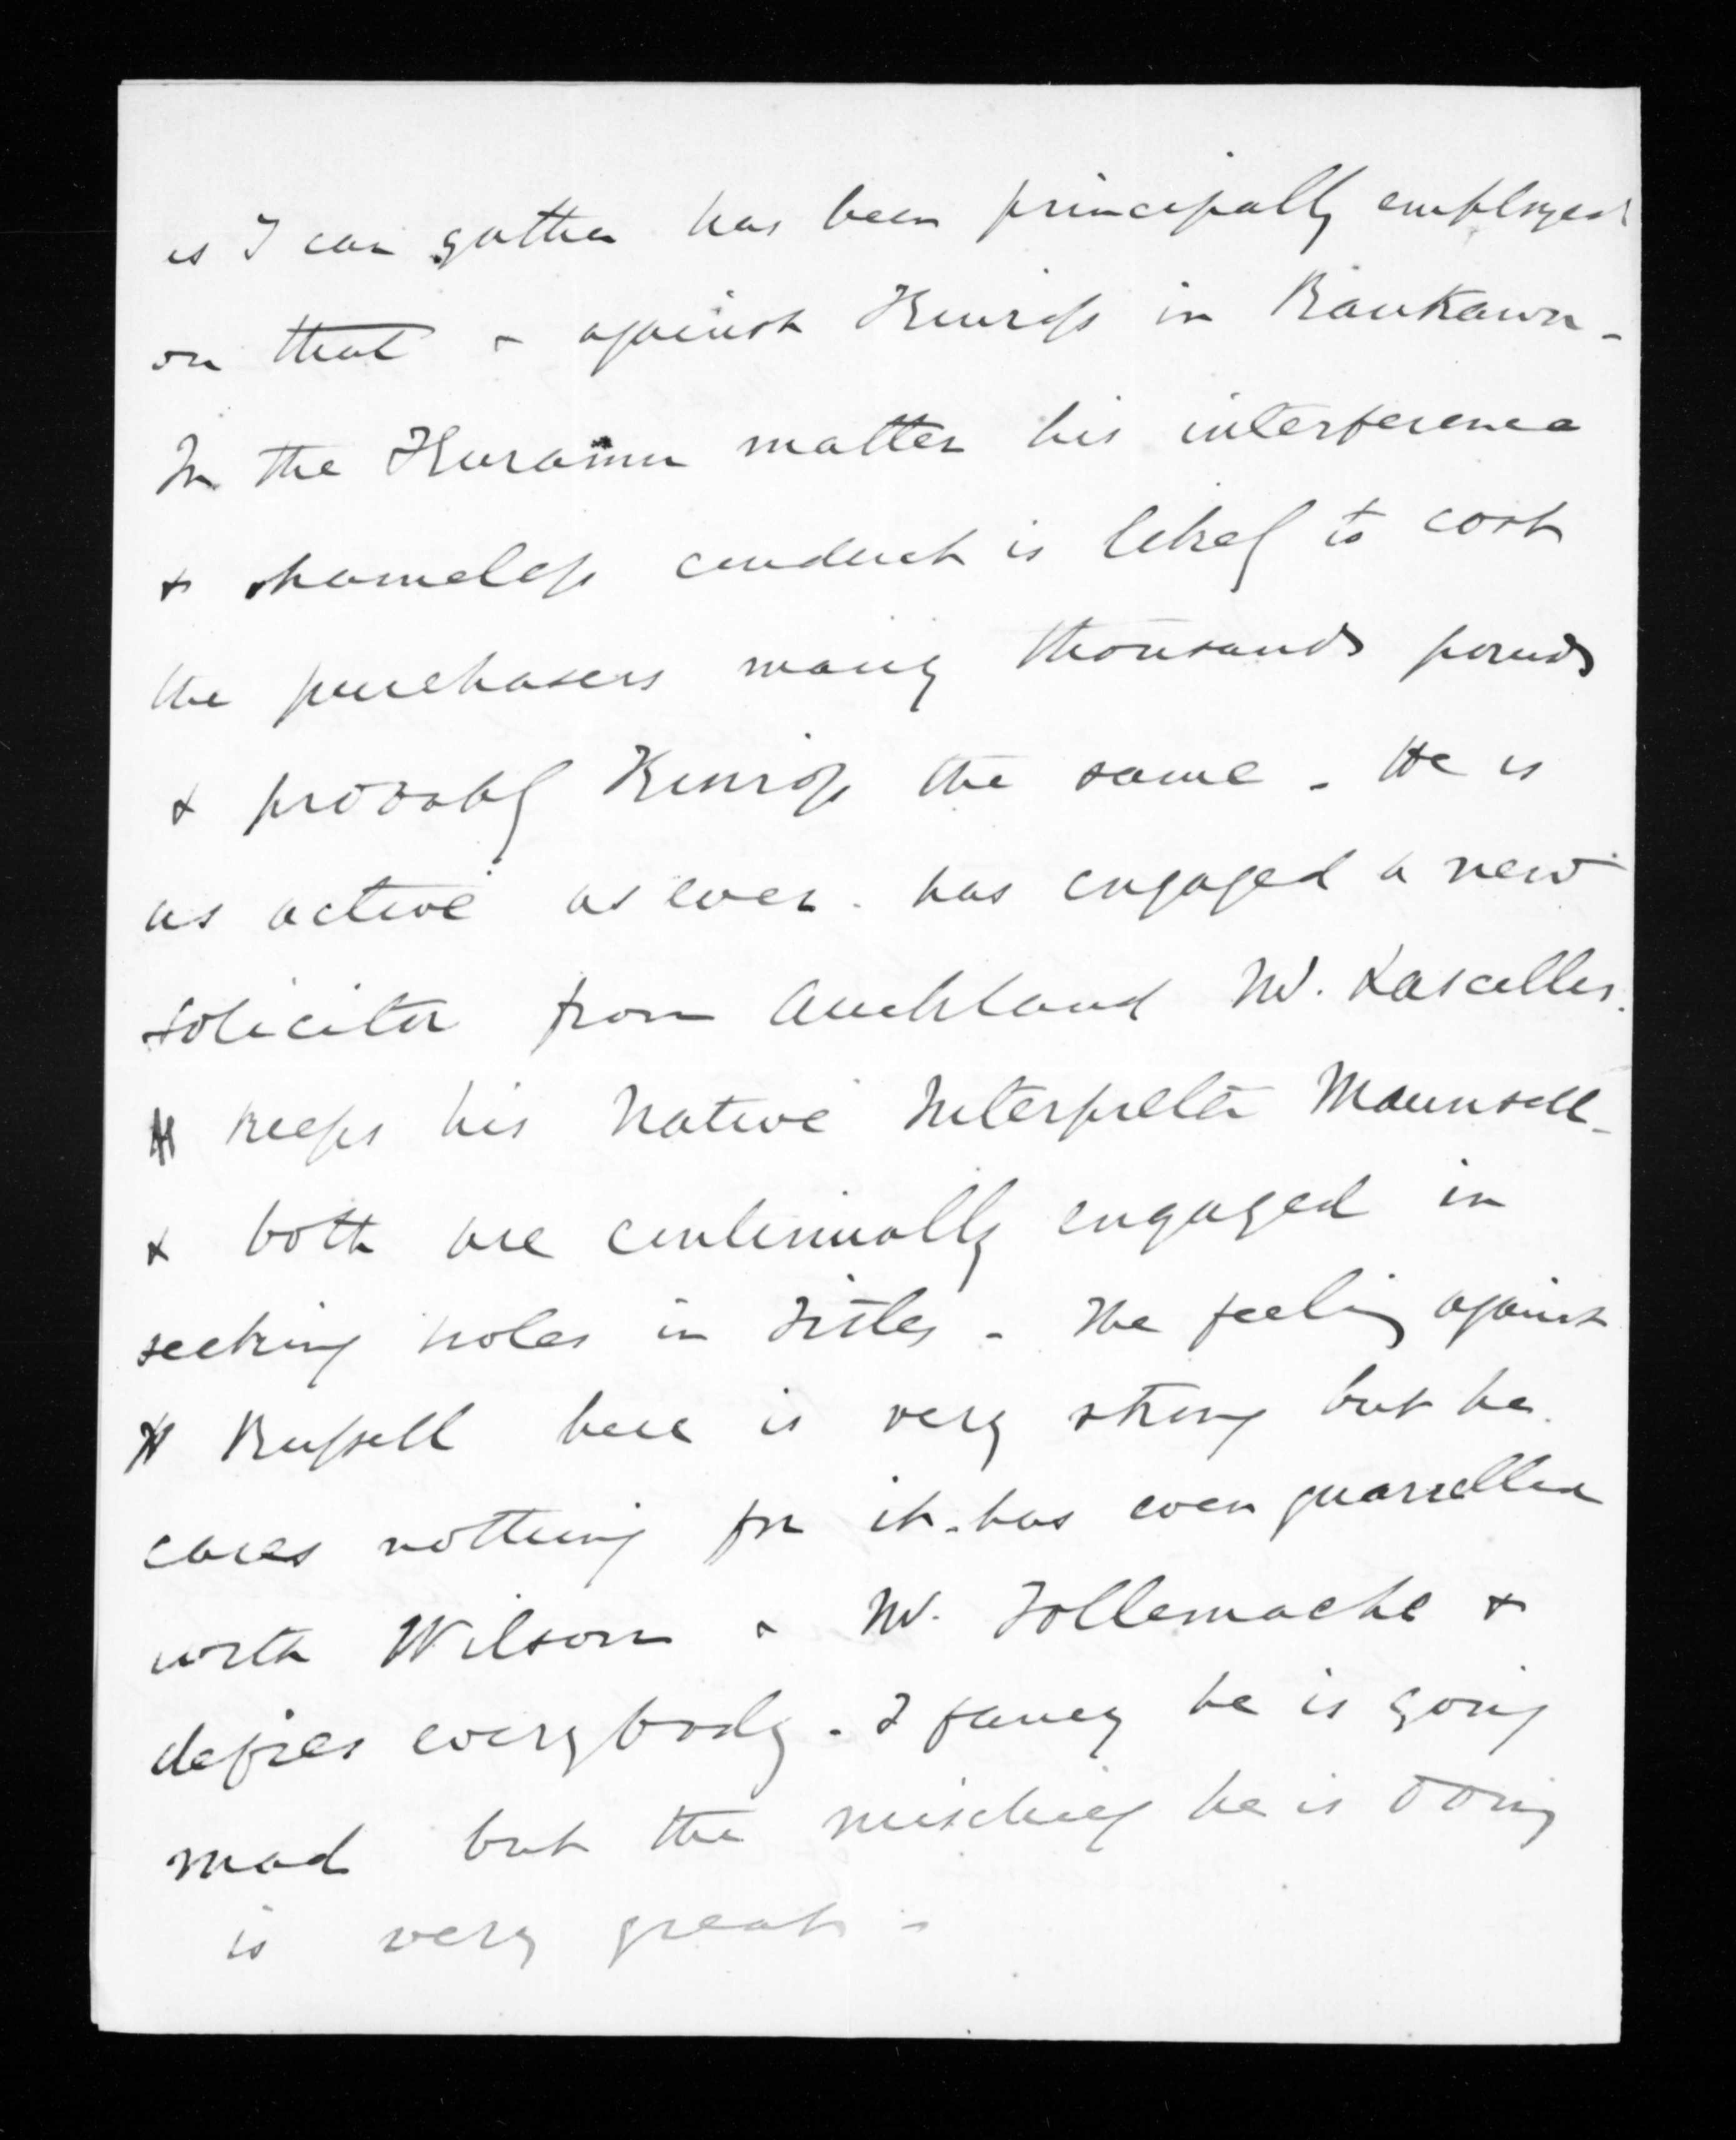 as I can gather has been principally employed
on that & against Kinross in Raukawa -
In the Kuramu matter his interference
& shameless conduct is likely to cost
the purchasers many thousands pounds
& probably Kinross the same - He is
as active as ever. has engaged a new
solicitor from Auckland Mr. Lascelles.
H keeps his Native Interpreter Maunsell -
& both are continually engaged in
seeking holes in Titles - The feeling against
H Russell here is very strong but he
cares nothing for it. has even quarrelled
with Wilson & Mr. Tollemache &
defies everybody - I fancy he is going
mad but the mischief he is doing
is very great -